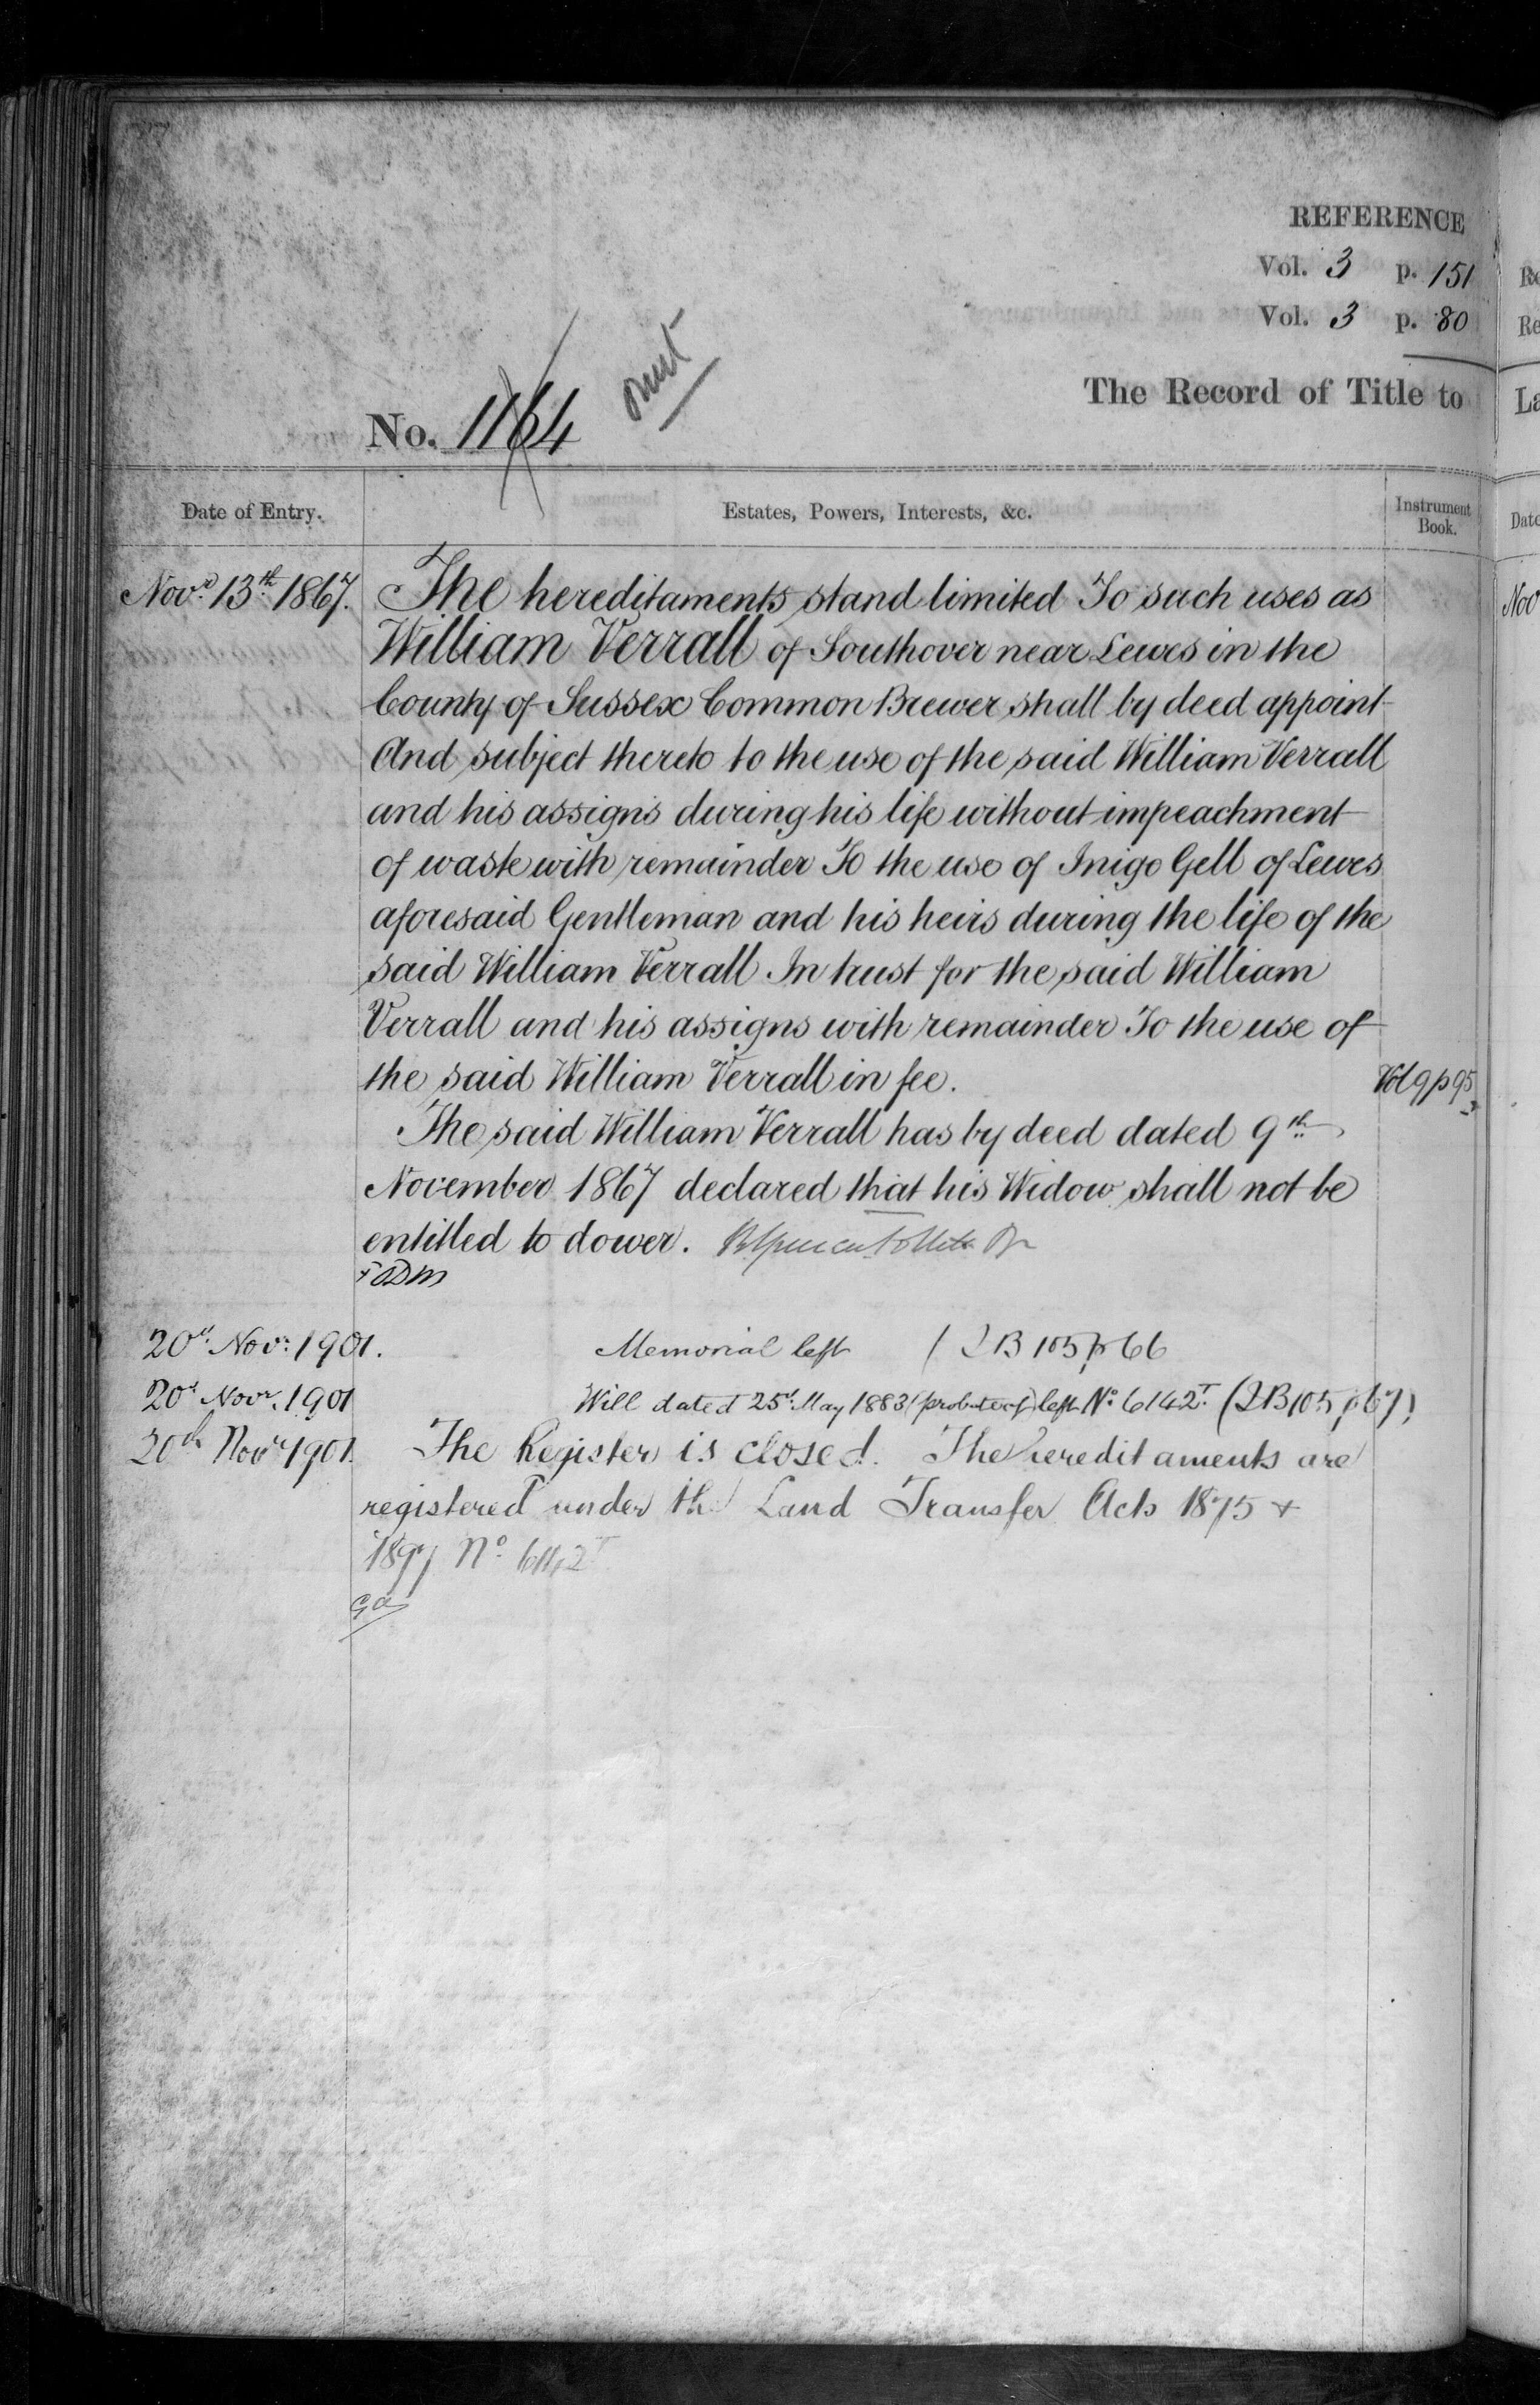 REFERENCE
Vol. 3 p. 151
Vol. 3 p. 80
The Record of Title to
No. 1164
Date of Entry.
Estates, Powers, Interests, &c.
Instrument Book.
Novr. 13th 1867.
The hereditaments stand limited To such uses as
William Verrall of Southover near Lewes in the
County of Sussex Common Brewer shall by deed appoint
And subject thereto to the use of the said William Verrall
and his assigns during his life without impeachment
of waste with remainder To the use of Inigo Gell of Lewes
aforesaid Gentleman and his heirs during the life of the
said William Verrall In trust for the said William
Verrall and his assigns with remainder To the use of
the said William Verrall in fee.
Vol 9 p 95
The said William Verrall has by deed dated 9th
November 1867 declared that his Widow shall not be
entitled to dower.
20th Novr. 1901. Memorial left (IB 105 p 66
20th Novr. 1901 Will dated 25th May 1883 (probate of) left No. 6142T (IB 105 p 67)
20th Novr 1901. The Register is closed. The hereditaments are
registered under the Land Transfer Acts 1875 &
1897 No. 6142T